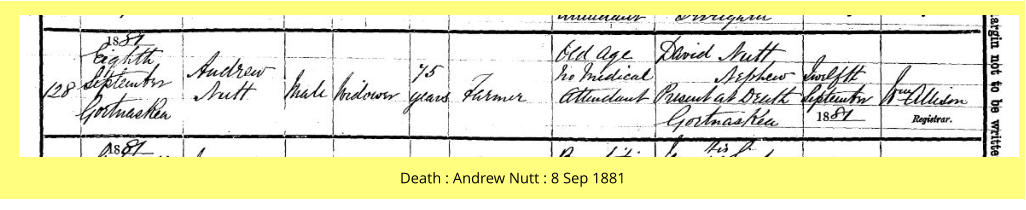 Attendant
1881
Eighth
September
Gortnaskea
128
Andrew
Nutt
Male
Widower
75
years
Farmer
Old age
No Medical
Attendant
David Nutt
Nephew
Present at Death
Gortnaskea
Twelfth
September
1881
Wm Allison
Registrar.
1881
argin not to be writte
Death : Andrew Nutt : 8 Sep 1881